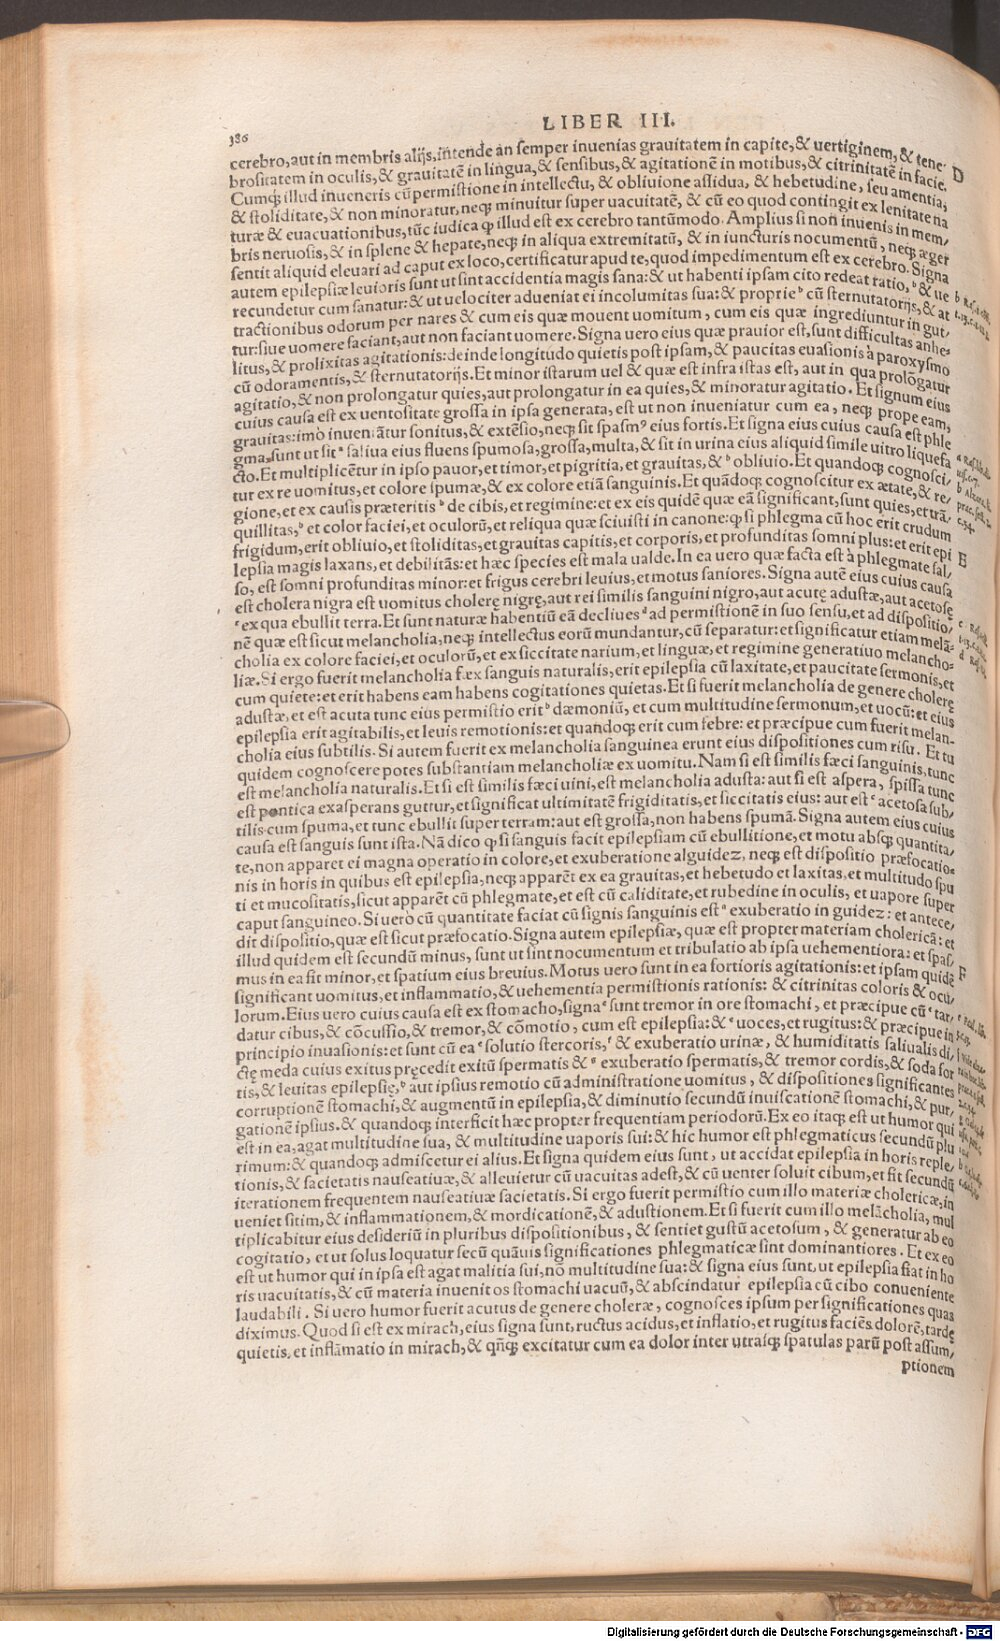 LIBER III.
386
cerebro, aut in membris alijs, intende an semper inuenias grauitatem in capite, & uertiginem, & tene-
brositatem in oculis, & grauitatē in lingua, & sensibus, & agitationē in motibus, & citrinitatē in facie. D
Cumq; illud inueneris cū permistione in intellectu, & obliuione assidua, & hebetudine, seu amentia,
& stoliditate, & non minoratur, neq; minuitur super uacuitatē, & cū eo quod contingit ex lenitate na
turæ & euacuationibus, tūc iudica ꝙ illud est ex cerebro tantūmodo. Amplius si non inuenis in mem/
bris neruosis, & in splene & hepate, neq; in aliqua extremitatū, & in iuncturis nocumentū, neq; æger
sentit aliquid eleuari ad caput ex loco, certificatur apud te, quod impedimentum est ex cerebro. Signa
autem epilepsiæ leuioris sunt ut sint accidentia magis sana: & ut habenti ipsam cito redeat ratio, b & ue
recundetur cum sanatur: & ut uelociter adueniat ei incolumitas sua: & proprie b cū sternutatorijs, & at
tractionibus odorum per nares & cum eis quæ mouent uomitum, cum eis quæ ingrediuntur in gut/
tur: siue uomere faciant, aut non faciant uomere. Signa uero eius quæ prauior est, sunt difficultas anhe/
litus, & prolixitas agitationis: deinde longitudo quietis post ipsam, & paucitas euasionis à paroxysmo
cū odoramentis, & sternutatorijs. Et minor istarum uel & quæ est infra istas est, aut in qua prolōgatur
agitatio, & non prolongatur quies, aut prolongatur in ea quies, & minoratur agitatio. Et signum eius
cuius causa est ex uentositate grossa in ipsa generata, est ut non inueniatur cum ea, neq; prope eam,
grauitas: imò inueniātur sonitus, & extēsio, neq; sit spasmꝰ eius fortis. Et signa eius cuius causa est phle
gma, sunt ut sit a saliua eius fluens spumosa, grossa, multa, & sit in urina eius aliquid simile uitro liquefa
cto. Et multiplicētur in ipso pauor, et timor, et pigritia, et grauitas, & b obliuio. Et quandoq; cognosci/
tur ex re uomitus, et colore spumæ, & ex colore etiā sanguinis. Et quādoq; cognoscitur ex ætate, & re/
gione, et ex causis præteritis b de cibis, et regimine: et ex eis quidē quæ eā significant, sunt quies, et trā/
quillitas, b et color faciei, et oculorū, et reliqua quæ sciuisti in canone: ꝙ si phlegma cū hoc erit crudum
frigidum, erit obliuio, et stoliditas, et grauitas capitis, et corporis, et profunditas somni plus: et erit epi E
lepsia magis laxans, et debilitās: et hæc species est mala ualde. In ea uero quæ facta est à phlegmate sal/
so, est somni profunditas minor: et frigus cerebri leuius, et motus saniores. Signa autē eius cuius causa
est cholera nigra est uomitus cholerę nigrę, aut rei similis sanguini nigro, aut acutę adustæ, aut acetosę
c ex qua ebullit terra. Et sunt naturæ habentiū eā decliues d ad permistionē in suo sensu, et ad dispositio/
nē quæ est sicut melancholia, neq; intellectus eorū mundantur, cū separatur: et significatur etiam melā-
cholia ex colore faciei, et oculorū, et ex siccitate narium, et linguæ, et regimine generatiuo melancho-
liæ. Si ergo fuerit melancholia fæx sanguis naturalis, erit epilepsia cū laxitate, et paucitate sermonis, et
cum quiete: et erit habens eam habens cogitationes quietas. Et si fuerit melancholia de genere cholerę
adustæ, et est acuta tunc eius permistio erit b dæmoniū, et cum multitudine sermonum, et uocū: et eius
epilepsia erit agitabilis, et leuis remotionis: et quandoq; erit cum febre: et præcipue cum fuerit melan-
cholia eius subtilis. Si autem fuerit ex melancholia sanguinea erunt eius dispositiones cum risu. Et tu
quidem cognoscere potes substantiam melancholiæ ex uomitu. Nam si est similis fæci sanguinis, tunc
est melancholia naturalis. Et si est similis fæci uini, est melancholia adusta: aut si est aspera, spissa tunc
est pontica exasperans guttur, et significat ultimitatē frigiditatis, et siccitatis eius: aut est c acetosa sub/
tilis cum spuma, et tunc ebullit super terram: aut est grossa, non habens spumā. Signa autem eius cuius
causa est sanguis sunt ista. Nā dico ꝙ si sanguis facit epilepsiam cū ebullitione, et motu absq; quantita/
te, non apparet ei magna operatio in colore, et exuberatione alguidez, neq; est dispositio præfocatio-
nis in horis in quibus est epilepsia, neq; apparēt ex ea grauitas, et hebetudo et laxitas, et multitudo spu
ti et mucositatis, sicut apparēt cū phlegmate, et est cū caliditate, et rubedine in oculis, et uapore super
caput sanguineo. Si uero cū quantitate faciat cū signis sanguinis est a exuberatio in guidez: et antece/
dit dispositio, quæ est sicut præfocatio. Signa autem epilepsiæ, quæ est propter materiam cholericā: et
illud quidem est secundū minus, sunt ut sint nocumentum et tribulatio ab ipsa uehementiora: et spas/
mus in ea fit minor, et spatium eius breuius. Motus uero sunt in ea fortioris agitationis: et ipsam quidē F
significant uomitus, et inflammatio, & uehementia permistionis rationis: & citrinitas coloris & ocu/
lorum. Eius uero cuius causa est ex stomacho, signa e sunt tremor in ore stomachi, et præcipue cū e tar/
datur cibus, & cōcussio, & tremor, & cōmotio, cum est epilepsia: & e uoces, et rugitus: & præcipue in
principio inuasionis: et sunt cū ea e solutio stercoris, f & exuberatio urinæ, & humiditatis saliualis di/
ctę meda cuius exitus pręcedit exitū spermatis & g exuberatio spermatis, & tremor cordis, & soda for
tis, & leuitas epilepsię, b aut ipsius remotio cū administratione uomitus, & dispositiones significantes
corruptionē stomachi, & augmentū in epilepsia, & diminutio secundū inuiscationē stomachi, & pur/
gationē ipsius. & quandoq; interficit hæc propter frequentiam periodorū. Ex eo itaq; est ut humor qui
est in ea, agat multitudine sua, & multitudine uaporis sui: & hic humor est phlegmaticus secundū plu
rimum: & quandoq; admiscetur ei alius. Et signa quidem eius sunt, ut accidat epilepsia in horis reple/
tionis, & sacietatis nauseatiuæ, & alleuietur cū uacuitas adest, & cū uenter soluit cibum, et fit secundū
iterationem frequentem nauseatiuæ sacietatis. Si ergo fuerit permistio cum illo materiæ cholericæ, in
ueniet sitim, & inflammationem, & mordicationē, & adustionem. Et si fuerit cum illo melācholia, mul
tiplicabitur eius desideriū in pluribus dispositionibus, & sentiet gustū acetosum, & generatur ab eo
cogitatio, et ut solus loquatur secū quāuis significationes phlegmaticæ sint dominantiores. Et ex eo
est ut humor qui in ipsa est agat malitia sui, nō multitudine sua: & signa eius sunt, ut epilepsia fiat in ho
ris uacuitatis, & cū materia inuenit os stomachi uacuū, & abscindatur epilepsia cū cibo conueniente
laudabili. Si uero humor fuerit acutus de genere choleræ, cognosces ipsum per significationes quas
diximus. Quod si est ex mirach, eius signa sunt, ructus acidus, et inflatio, et rugitus faciēs dolorē, tardę
quietis, et inflāmatio in mirach, & qn̄q; excitatur cum ea dolor inter utrasq; spatulas parū post assum/
ptionem
Digitalisierung gefördert durch die Deutsche Forschungsgemeinschaft - DFG